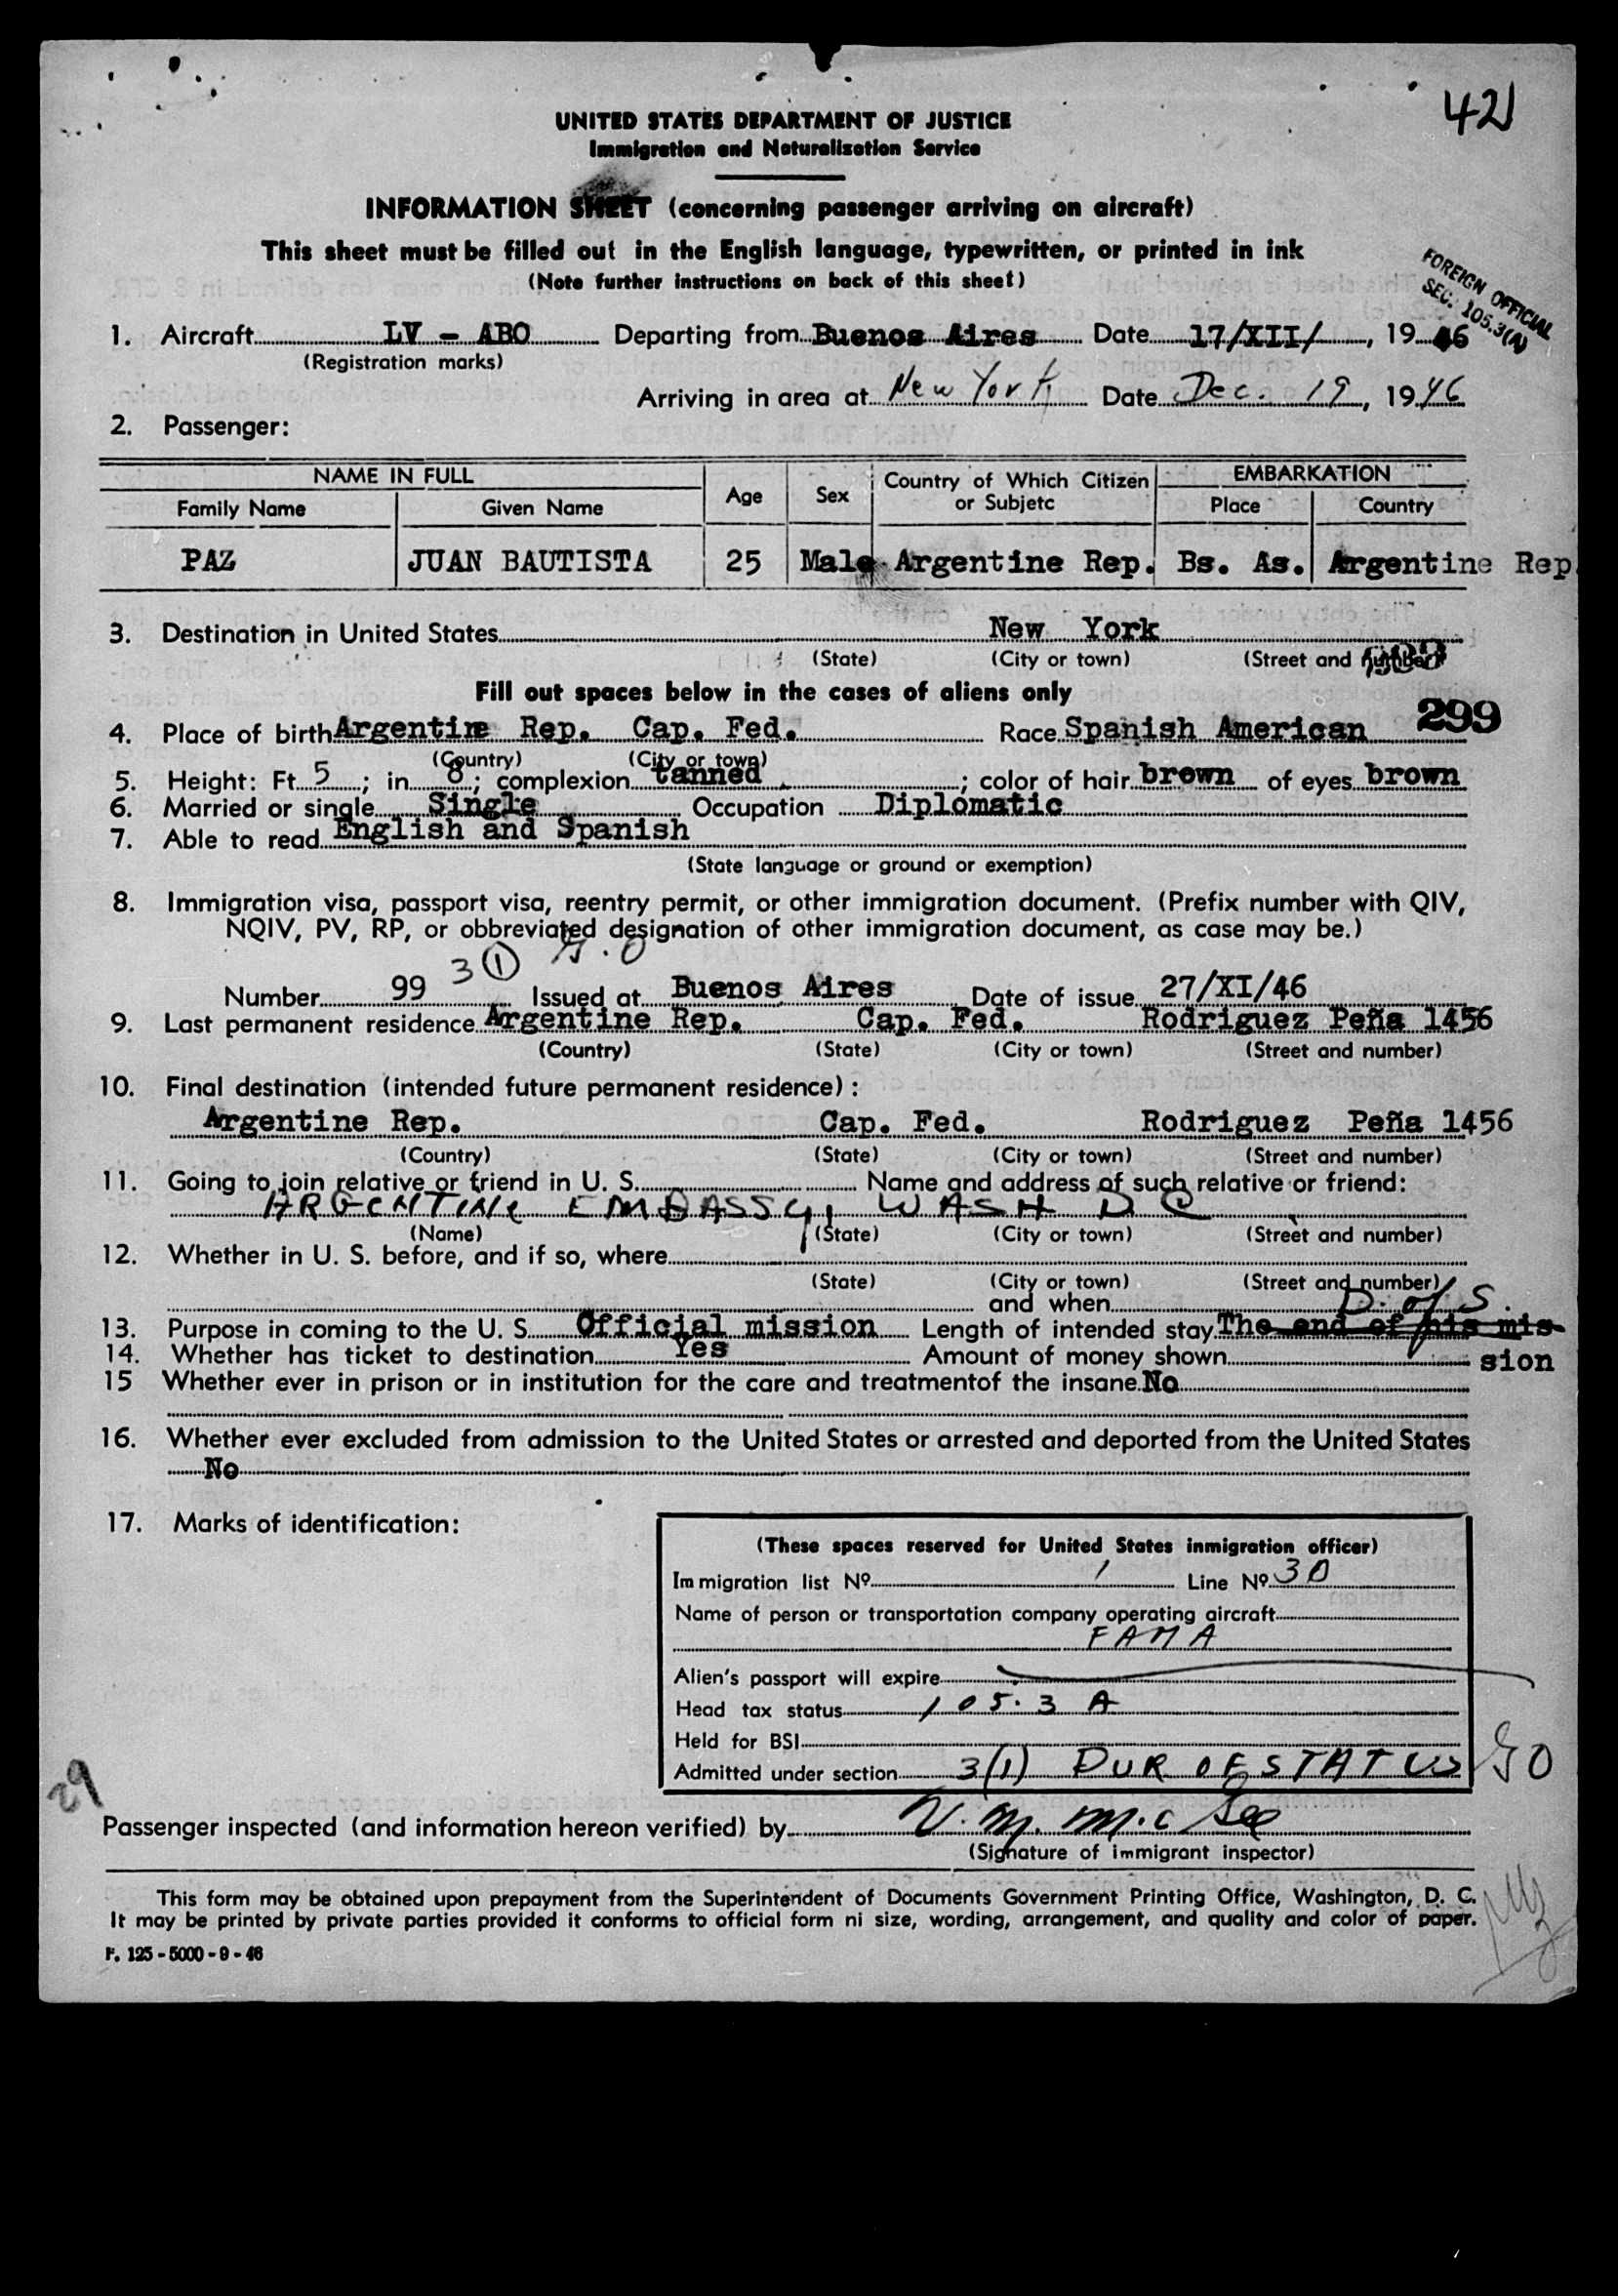 42
UNITED STATES DEPARTMENT OF JUSTICE
Immigration and Naturalization Service
INFORMATION SHEET (concerning passenger arriving on aircraft)
This sheet must be filled out in the English language, typewritten, or printed in ink
(Note further instructions on back of this sheet)
FOREIGN OFFICIAL
SEC. 105.3(A)
1. Aircraft LV - ABO Departing from Buenos Aires Date 17/XII/, 19 46
(Registration marks)
Arriving in area at New York Date Dec. 19, 1946
2. Passenger:
NAME IN FULL Age Sex Country of Which Citizen or Subjetc EMBARKATION
Family Name Given Name Place Country
PAZ JUAN BAUTISTA 25 Male Argentine Rep. Bs. As. Argentine Rep.
3. Destination in United States New York
(State) (City or town) (Street and number)
Fill out spaces below in the cases of aliens only
299
4. Place of birth Argentine Rep. Cap. Fed. Race Spanish American
(Country) (City or town)
5. Height: Ft. 5; in. 8; complexion tanned; color of hair brown of eyes brown
6. Married or single Single Occupation Diplomatic
7. Able to read English and Spanish
(State language or ground or exemption)
8. Immigration visa, passport visa, reentry permit, or other immigration document. (Prefix number with QIV,
NQIV, PV, RP, or obbreviated designation of other immigration document, as case may be.)
3 (1) G.O
Number 99 Issued at Buenos Aires Date of issue 27/XI/46
9. Last permanent residence Argentine Rep. Cap. Fed. Rodriguez Peña 1456
(Country) (State) (City or town) (Street and number)
10. Final destination (intended future permanent residence):
Argentine Rep. Cap. Fed. Rodriguez Peña 1456
(Country) (State) (City or town) (Street and number)
11. Going to join relative or friend in U. S. Name and address of such relative or friend:
ARGENTINE EMBASSY, WASH D C
(Name) (State) (City or town) (Street and number)
12. Whether in U. S. before, and if so, where
(State) (City or town) (Street and number)
and when
D. of S.
13. Purpose in coming to the U. S. Official mission Length of intended stay The end of his mis-
14. Whether has ticket to destination Yes Amount of money shown sion
15 Whether ever in prison or in institution for the care and treatmentof the insane. No
16. Whether ever excluded from admission to the United States or arrested and deported from the United States
No
17. Marks of identification:
(These spaces reserved for United States inmigration officer)
Immigration list Nº 1 Line Nº 30
Name of person or transportation company operating aircraft
FAMA
Alien's passport will expire
Head tax status 105.3 A
Held for BSI
Admitted under section 3(1) DUR OF STATUS GO
29
Passenger inspected (and information hereon verified) by V. M. McGee
(Signature of immigrant inspector)
This form may be obtained upon prepayment from the Superintendent of Documents Government Printing Office, Washington, D. C.
It may be printed by private parties provided it conforms to official form ni size, wording, arrangement, and quality and color of paper.
F. 125 - 5000 - 9 - 46